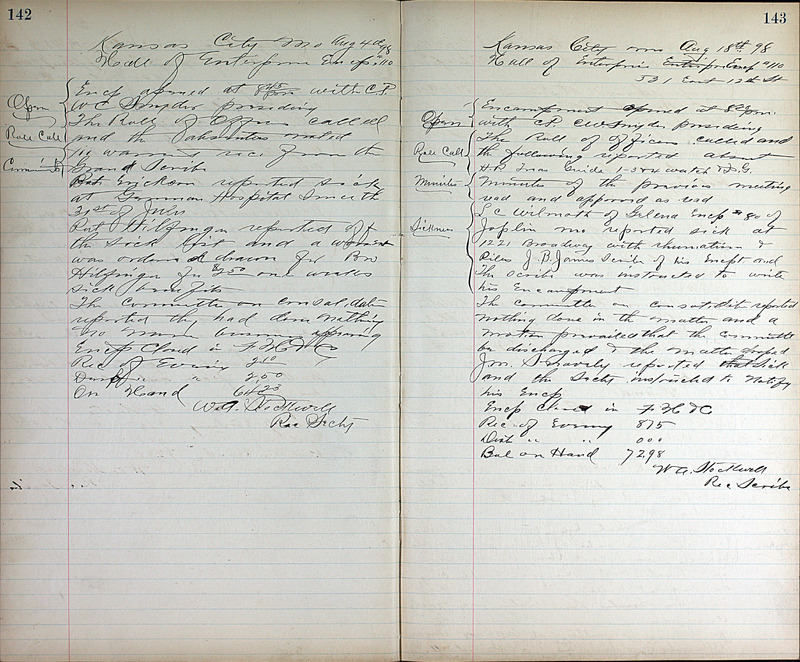 142
Kansas City Mo Aug 4 98
Hall of Enterprise Encp 110
Open
Encp opened at with C.P.
W C Snyder presiding
Roll Call
The Roll of Officers called
and the noted
Communicat
warrant rec from the
Grand Scribe
Pat Erickson reported sick
at German Hospital Since the
31st of July
Pat Hilfinger reported off
the sick list and a warrant
was ordered drawn for Bro
Hilfinger for $2.50 one weeks
sick benefits
The Committee on consolidation
reported they had done nothing
No more business appearing
Encp Closed in F. H & C
Rec of Evening 2 10
Dis " " 2 50
On Hand 64 23
W. A. Stockwell
Rec Scribe
143
Kansas City mo Aug 18th 98
Hall of Enterprise Encp #110
531 East 12th St
Open
Encampment opened at 8 pm
with C.P. C W Snyder presiding
Roll Call
The Roll of Officers called and
the following reported absent
H.P. Treas Guide 1-3 & 4 watch I.S.G.
Minutes
Minutes of the previous meeting
read and approved as read
Sickness
L C Wilmoth of Galena Encp # 80 of
Joplin mo reported sick at
1221 Broadway with rhumatism &
Piles J. B. James Scribe of his Encpt and
The scribe was instructed to write
his Encampment
The committe on consolidation reported
nothing done in the matter and a
motion prevailed that the committe
be discharged & the matter droped
Jon. S Gavily reported sick
and the Scribe instructed to notify
his Encp
Encp closed in F H & C
Rec of Evening 8 75
Disb " " 0 00
Bal on Hand 72 98
W A. Stockwell
Rec Scribe